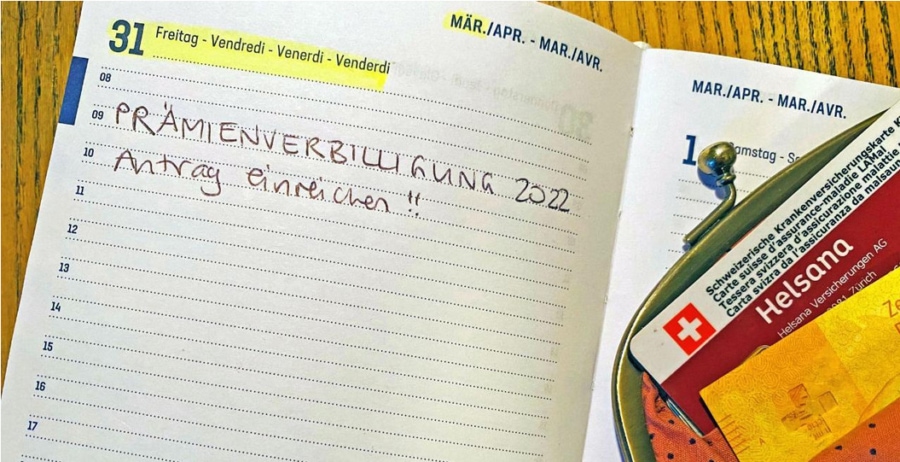 MÄR./APR. - MAR./AVR.
31 Freitag - Vendredi - Venerdi - Venderdi
08
09 PRÄMIENVERBILLIGUNG 2022
10 Antrag einreichen !!
11
12
13
14
15
16
17
MAR./APR. - MAR./AVR.
1 Samstag - S
Schweizerische Krankenversicherungskarte K
Carte suisse d'assurance-maladie LAMal
Tessera svizzera d'assicurazione malattie
Carta svizra da l'assicuranza da malsauns
Helsana
Helsana Versicherungen AG
Zürich